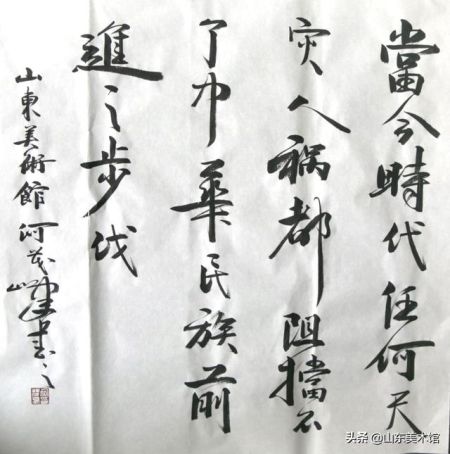 當今時代任何天
灾人祸都阻擋不
了中華民族前
進之步伐
山東美術館 何茂山書之
头条@山东美术馆